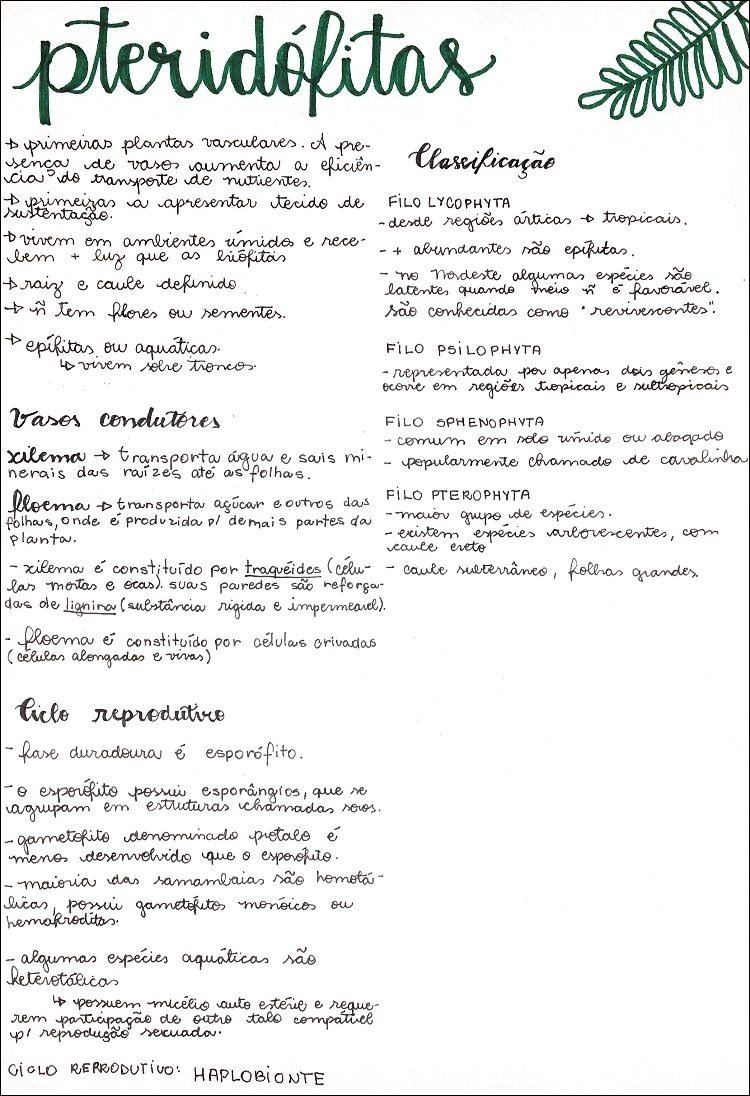 pteridófitas
→ primeiras plantas vasculares. A pre-
sença de vasos aumenta a eficiên-
cia do transporte de nutrientes.
→ primeiras a apresentar tecido de
sustentação.
→ vivem em ambientes úmidos e rece-
bem + luz que as briófitas
→ raiz e caule definido
→ ñ tem flores ou sementes.
→ epífitas ou aquáticas.
↳ vivem sobre troncos.
Vasos condutores
xilema → transporta água e sais mi-
nerais das raízes até as folhas.
floema → transporta açúcar e outros das
folhas, onde é produzida p/ demais partes da
planta.
- xilema é constituído por traqueídes (célu-
las mortas e ocas). suas paredes são reforça-
das de lignina (substância rígida e impermeável).
- floema é constituído por células crivadas
(células alongadas e vivas)
Ciclo reprodutivo
- fase duradoura é esporófito.
- o esporófito possui esporângios, que se
agrupam em estruturas chamadas soros.
- gametófito denominado protalo é
menos desenvolvido que o esporófito.
- maioria das samambaias são homotá-
licas, possui gametófitos monóicos ou
hemafroditas.
- algumas espécies aquáticas são
heterotálicas
↳ possuem micélio auto estéril e reque-
rem participação de outro talo compatível
p/ reprodução sexuada.
CICLO REPRODUTIVO: HAPLOBIONTE
Classificação
FILO LYCOPHYTA
- desde regiões árticas → tropicais.
- + abundantes são epífitas.
- no Nordeste algumas espécies são
latentes quando meio ñ é favorável.
São conhecidas como "revivescentes".
FILO PSILOPHYTA
- representada por apenas dois gêneros e
ocorre em regiões tropicais e subtropicais
FILO SPHENOPHYTA
- comum em solo úmido ou alagado
- popularmente chamado de cavalinha
FILO PTEROPHYTA
- maior grupo de espécies.
- existem espécies arborescentes, com
caule ereto
- caule subterrâneo, folhas grandes.